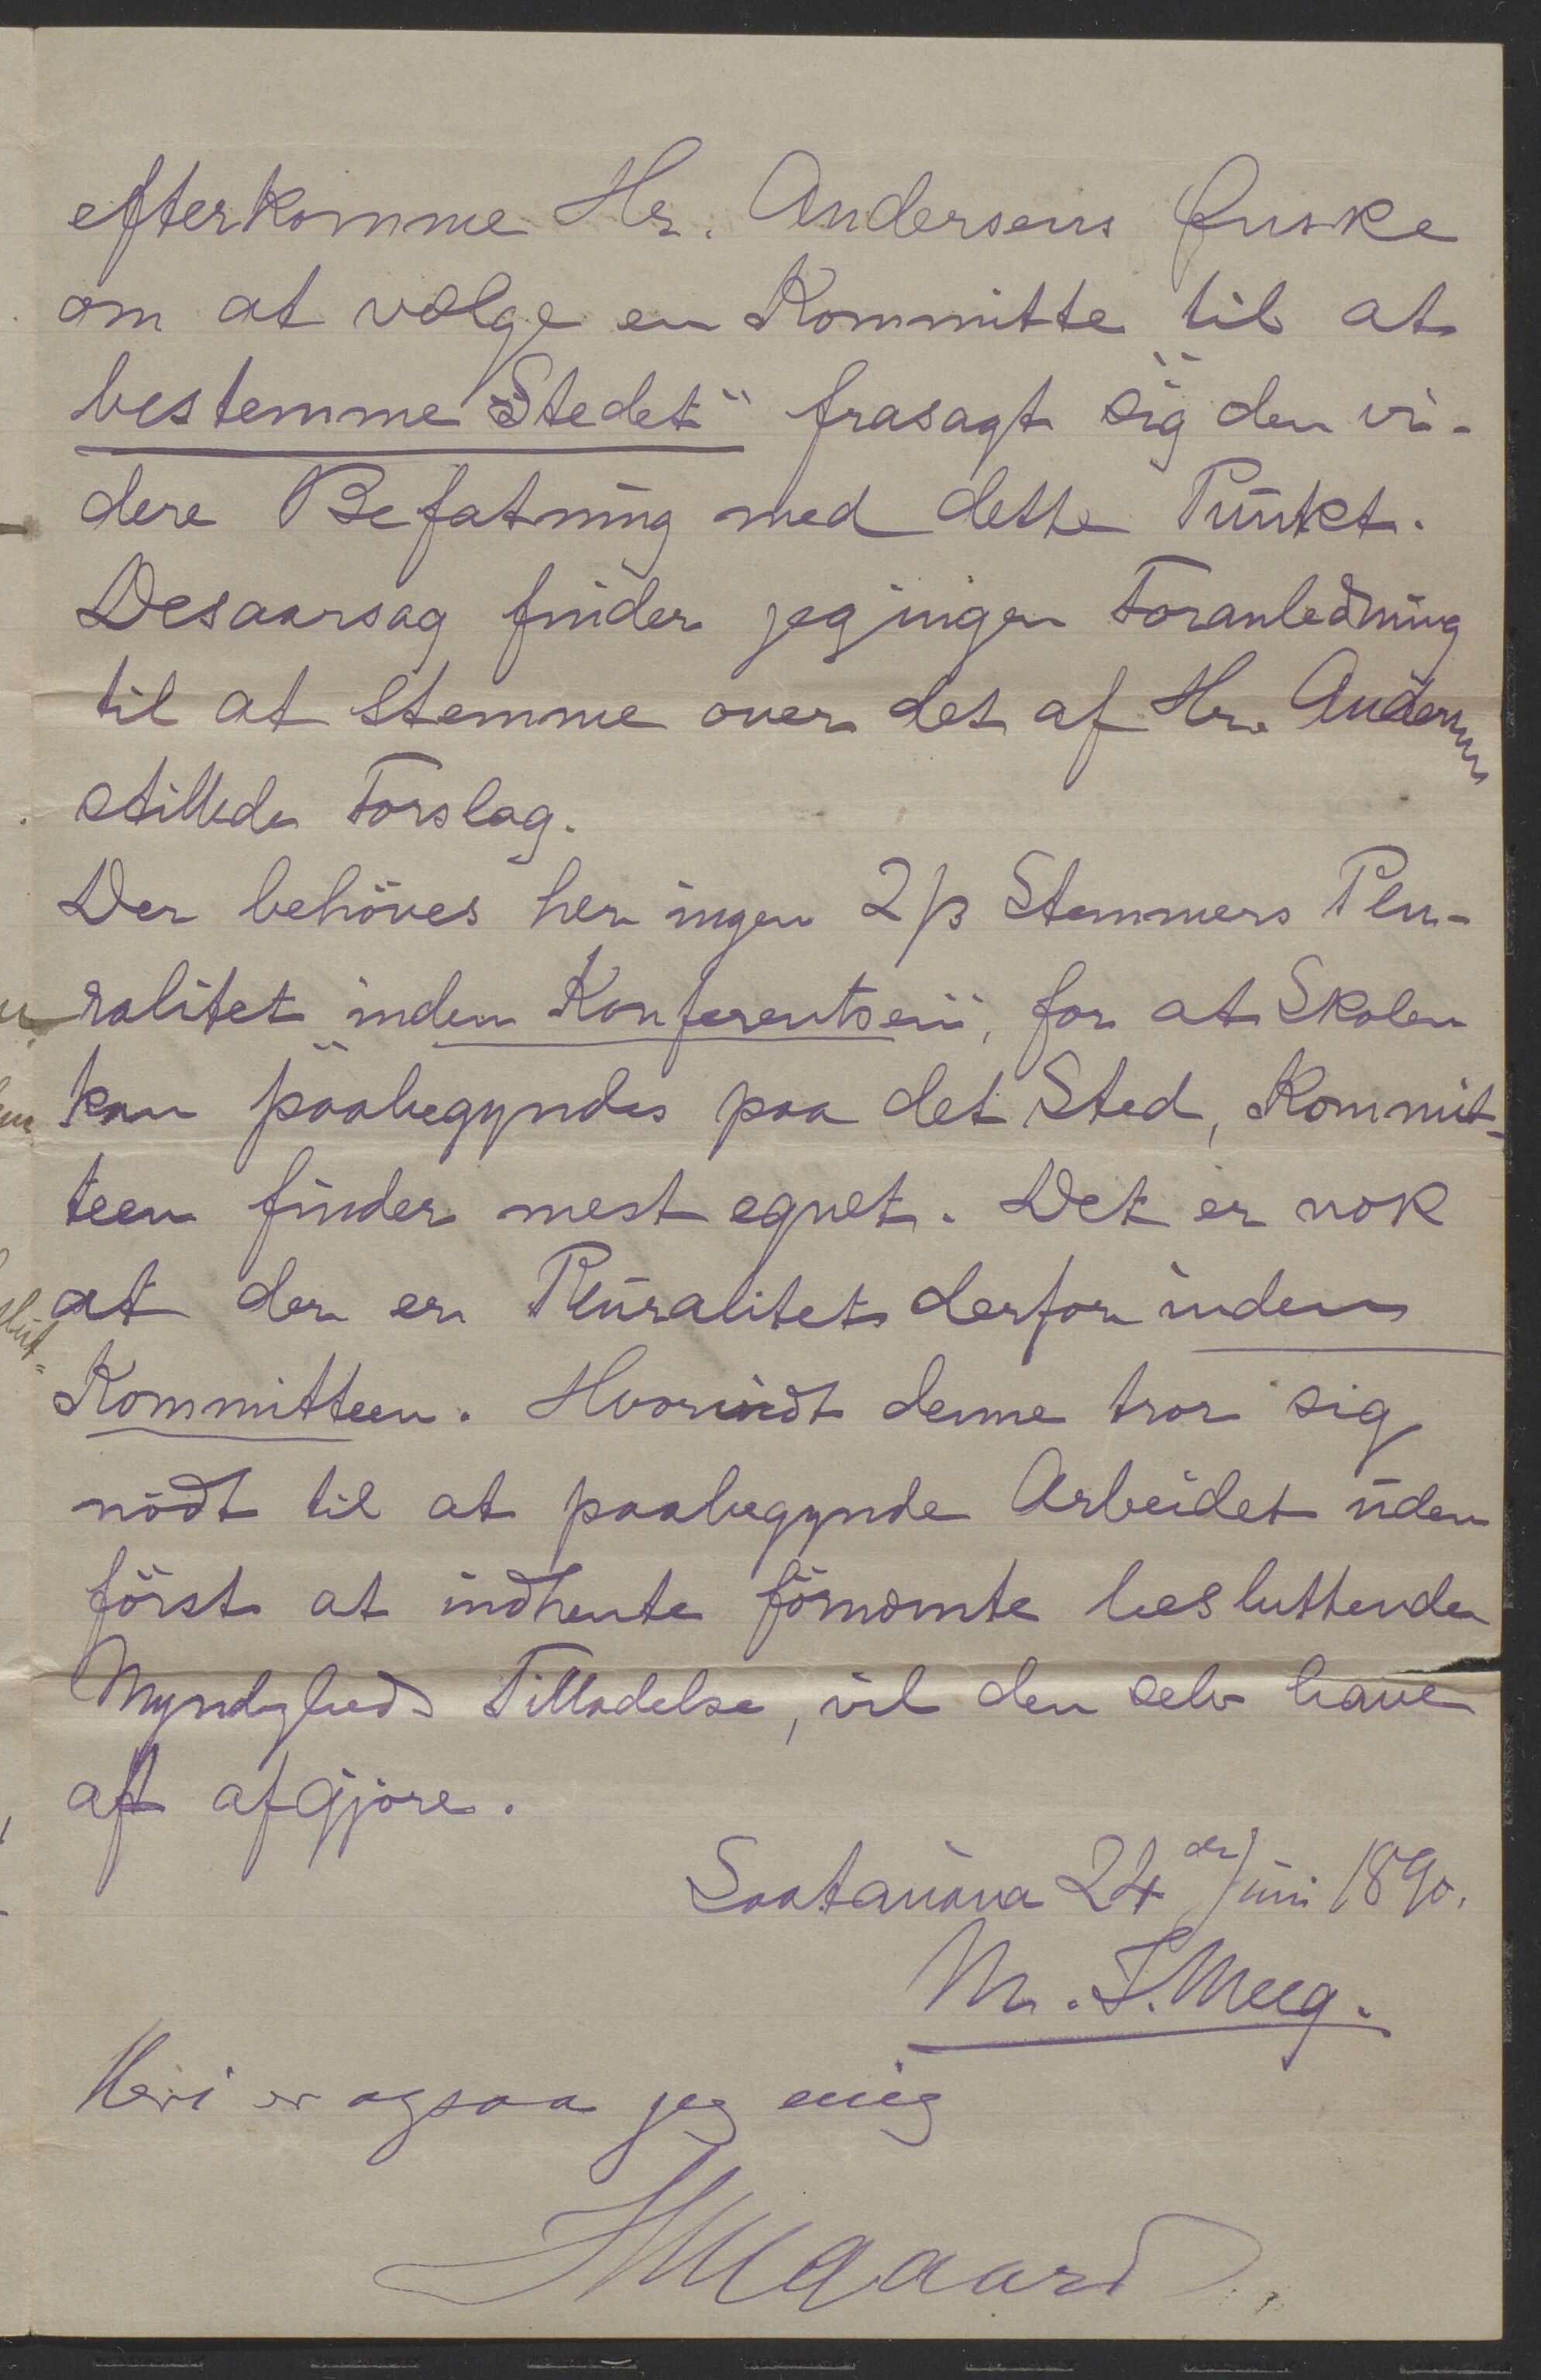 efterkomme Hr. Andersens Ønske
om at vælge en Kommitte til at
bestemme "Stedet" frasagt sig den vi-
dere Befatning med dette Punkt.
Desaarsag finder jeg ingen Foranledning
til at stemme over det af Hr. Andersen
stillede Forslag.
Der behöves her ingen 2/3 Stemmers Plu-
ralitet "inden Konferentsen", for at Skolen
kan paabegyndes paa det Sted, Kommit-
teen finder mest egnet. Det er nok
at der er Pluralitet derfor inden
Kommitteen. Hvorvidt denne tror sig
nödt til at paabegynde Arbeidet uden
först at indhente förnævnte besluttende
Myndigheds Tilladelse, vil den selv have
at afgjöre.
24de Juni 1890.
Heri er ogsaa jeg enig